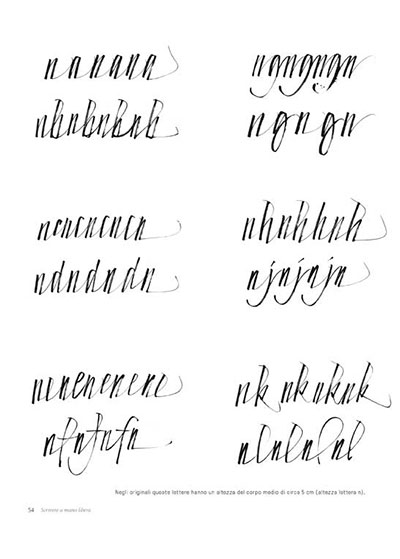 nanana
nbnbnbnb
ncncncncn
ndndndn
nenenenene
nfnfnfn
ngngngn
ngngn
nhnhhnh
njnjnjn
nk nk nk nk
nlnlnlnl
Negli originali queste lettere hanno un'altezza del corpo medio di circa 5 cm (altezza lettera n).
54 Scrivere a mano libera